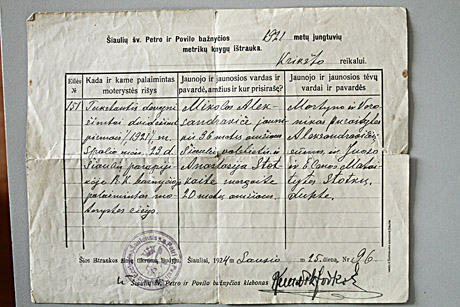 Šiaulių šv. Petro ir Povilo bažnyčios 1921 metų jungtuvių
metrikų knygų ištrauka.
Krikšto reikalui.
Eilės №
Kada ir kame palaimintas moterystės rišys
Jaunojo ir jaunosios vardas ir pavardė, amžius ir kur prisirašę?
Jaunojo ir jaunosios tėvų vardai ir pavardės
151
Tūkstantis devyni
šimtai dvidešimt
pirmais /1921/ m.
Spalio mėn. 22 d.
Šiaulių parapijo-
je R.K. bažnyčioje
palaimintas mo-
terystės rišys.
Mikolas Alek-
sandravičė jauni-
kis 36 metų amžiaus
Šiaulių valsčiaus ir
Anastazija Stot-
kaitė mergaitė
20 metų amžiaus.
Martyno ir Varo-
nikas
Aleksandravičių
ir Juozo
ir
Stotkų,
duktė.
Šios ištraukos
Šiauliai, 1924 m. Sausio m. 25 dieną, № 96
Šiaulių šv. Petro ir Povilo bažnyčios klebonas